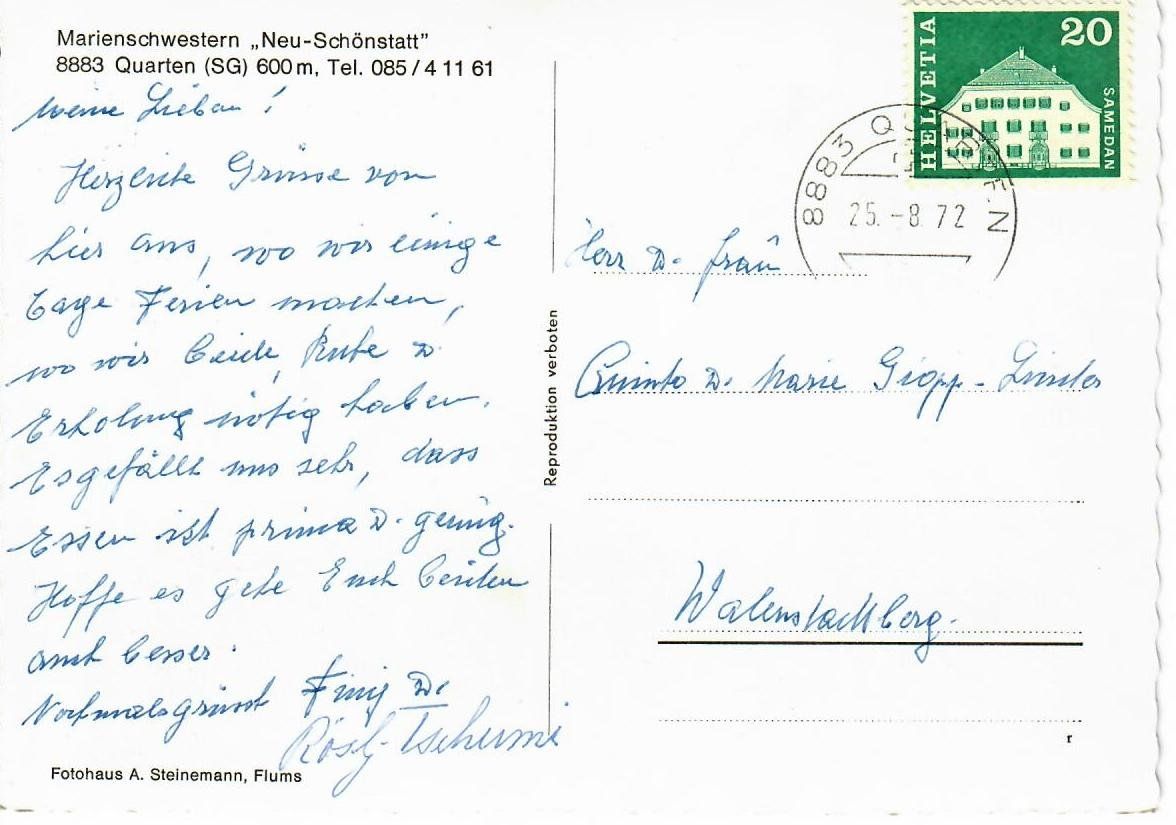 Marienschwestern „Neu-Schönstatt”
8883 Quarten (SG) 600 m, Tel. 085 / 4 11 61
meine Lieben !
Herzliche Grüsse von
hier aus, wo wir einige
Tage Ferien machen,
wo wir beide, Ruhe u.
Erholung nötig haben.
Es gefällt uns sehr, dass
Essen ist prima u. genug.
Hoffe es gehe Euch beiden
auch besser.
Nochmals grüsst
Rösly Tschirmi
Fotohaus A. Steinemann, Flums
Reproduktion verboten
HELVETIA
20
SAMEDAN
8883 QUARTEN
25.-8.72
Herr u. Frau
Quinto u. Marie Giopp-Linder
Walenstadtberg.
r